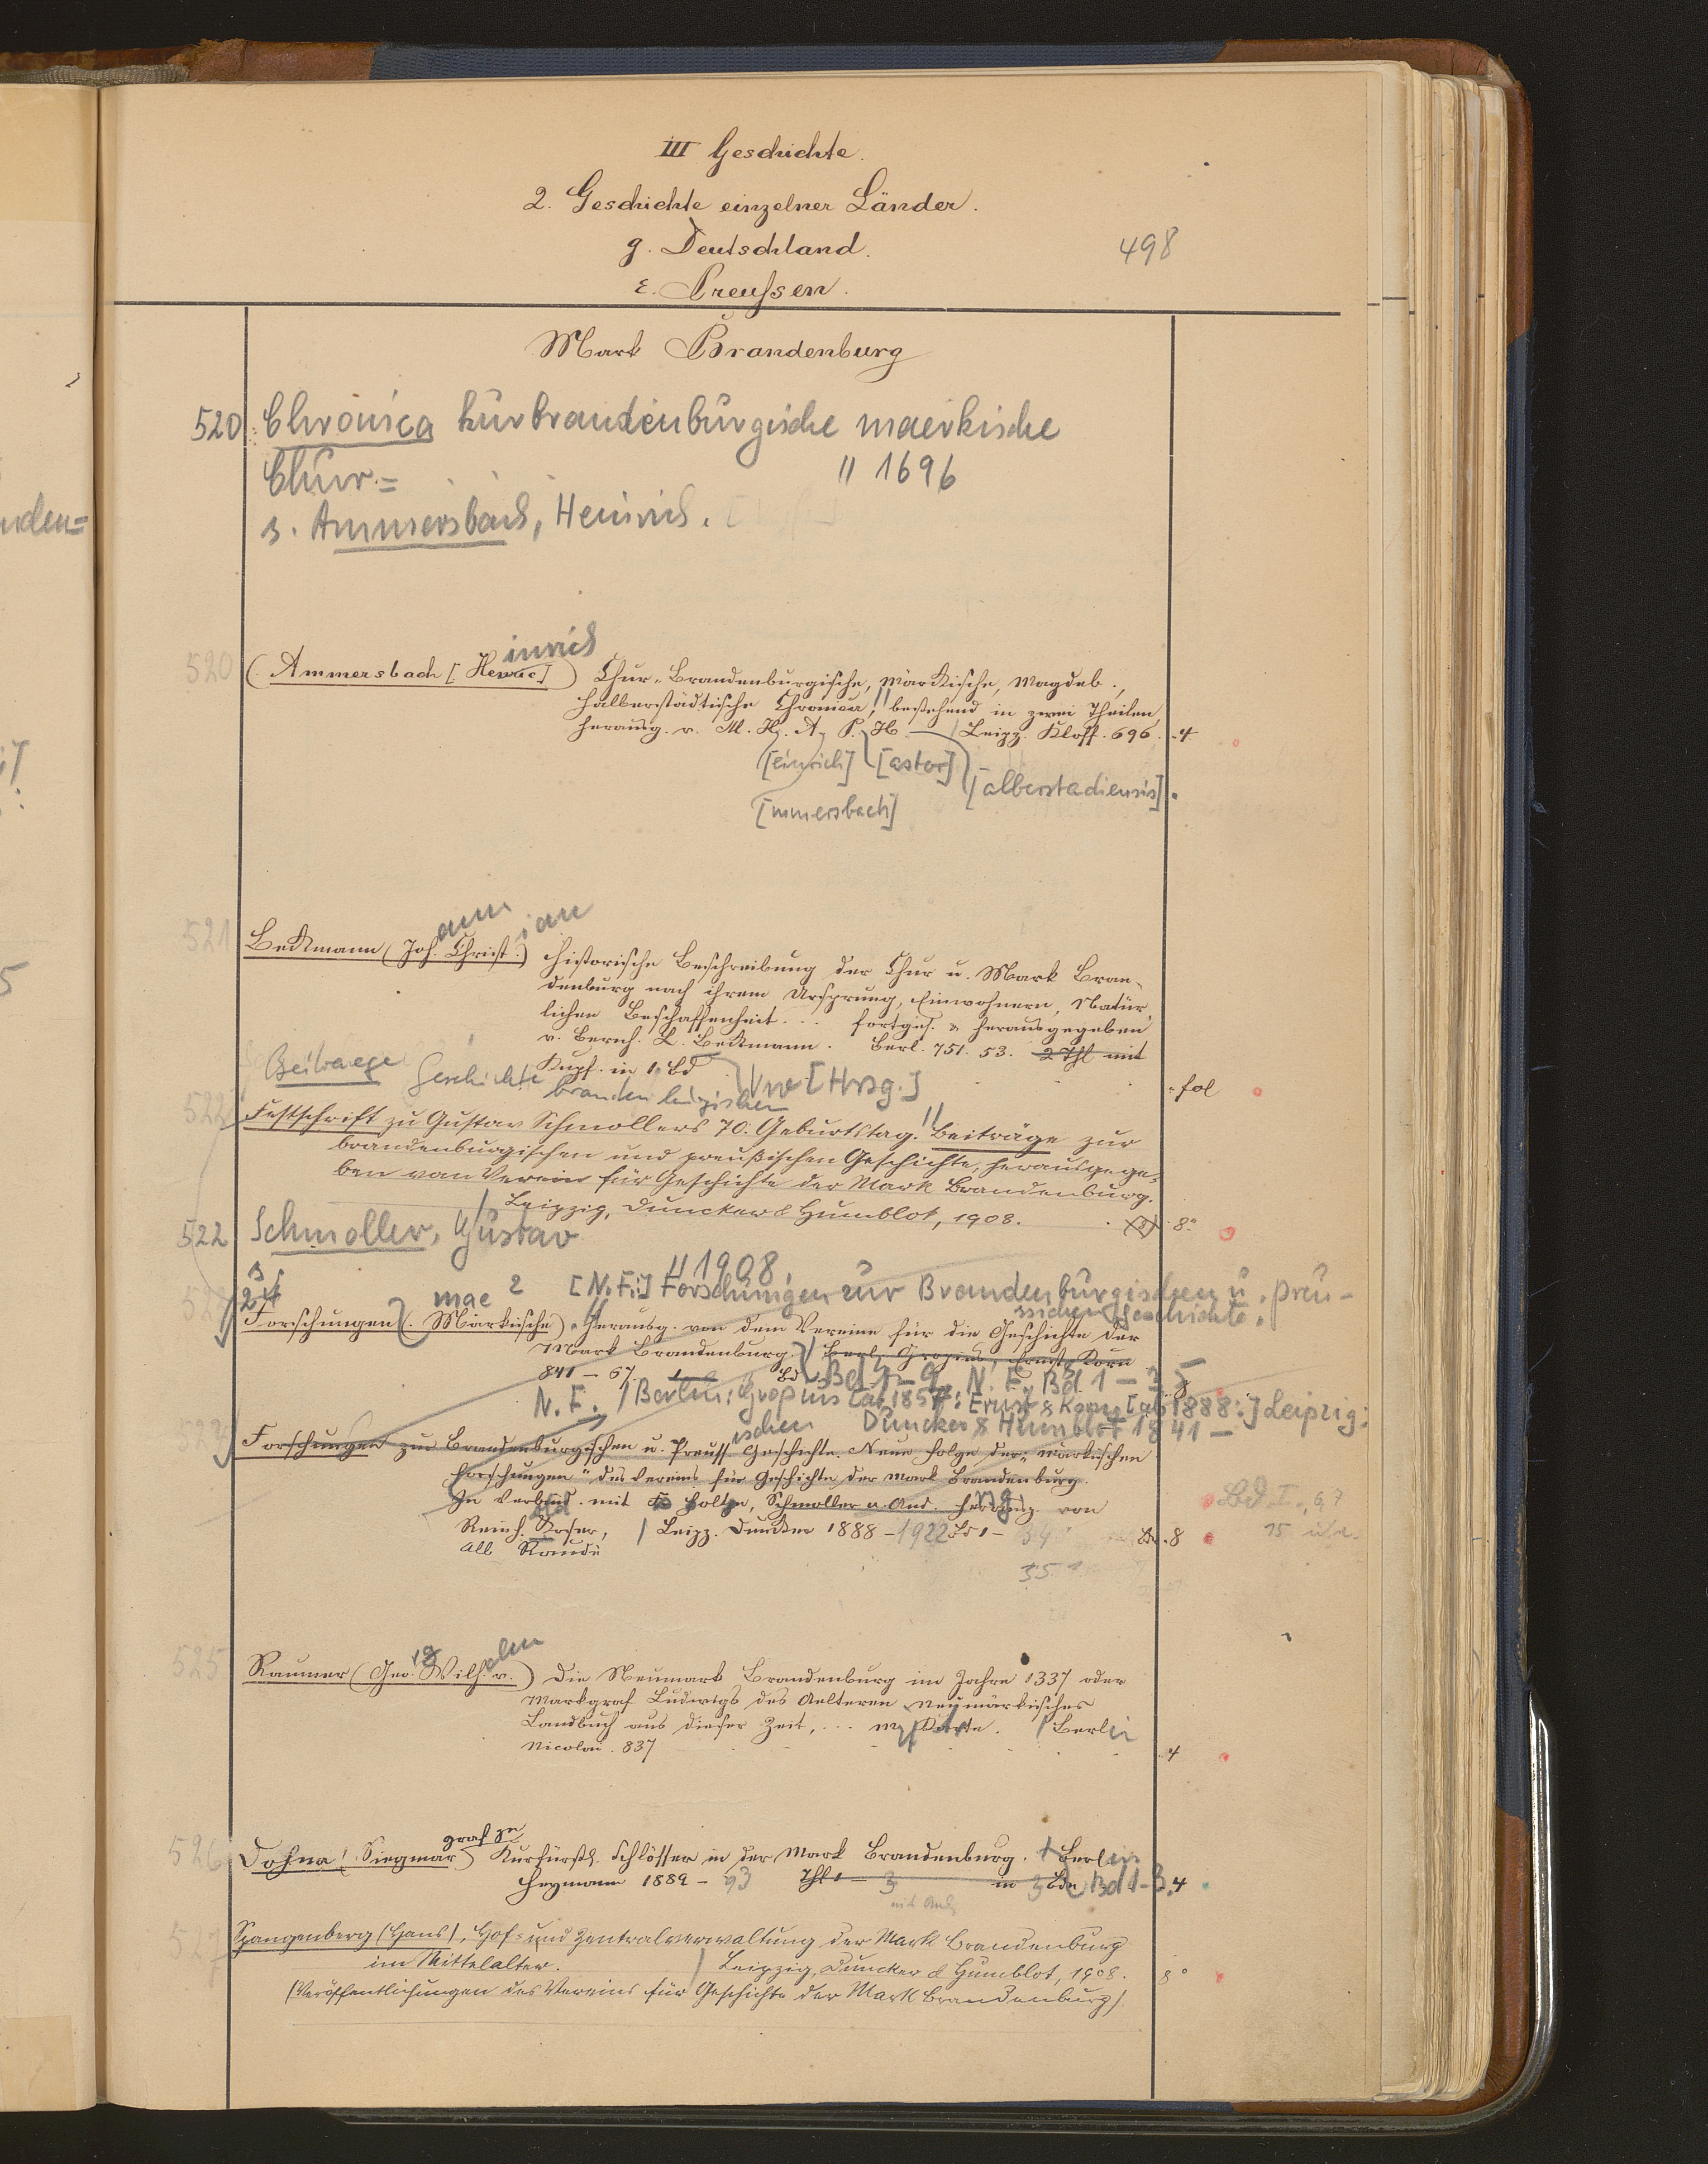 III Geschichte.
2. Geschichte einzelner Länder.
g. Deutschland.
498
ε. Preußen.
Mark Brandenburg
520 Chronica kurbrandenburgische maerkische
Chur= " 1696
s. Ammersbach, Heinrich.
520 (Ammersbach [Henric]) inrich Chur-Brandenburgische, Märkische, Magdeb.,
Halberstädtische Chronica, bestehend in zwei Theilen
herausg. v. M. H. A. P. H. Leipz. Kloss. 696. 4.
[einrich] [astor] [alberstadiensis].
[mmersbach]
521 Beckmann (Joh. Christ.) ann ian Historische Beschreibung der Chur u. Mark Bran-
denburg nach ihrem Ursprung, Einwohnern, Natür-
lichen Beschaffenheit ... fortges. & herausgegeben
v. Bernh. L. Beckmann. Berl. 751. 53. 2 Thl mit
Kupf. in 1 Bd fol
Beitraege Geschichte brandenburgischen [Hrsg.]
522 Festschrift zu Gustav Schmollers 70. Geburtstag. Beiträge zur
brandenburgischen und preußischen Geschichte, herausgege-
ben vom Verein für Geschichte der Mark Brandenburg.
Leipzig, Duncker & Humblot, 1908. 8°
522 Schmoller, Gustav
" 1908.
mae 2 [N.F.:] Forschungen zur Brandenburgischen u. preu-
ssischen Geschichte.
Forschungen (Märkische). Herausg. von dem Vereine für die Geschichte der
Mark Brandenburg. Berl. Gropius, Ernst & Korn
841 – 67. Bd 1–9, N. F. Bd. 1 – 35 8
N. F. / Berlin: Gropius [ab 1857: Ernst & Korn [ab 1888:] Leipzig:
ischen Duncker & Humblot 1841 –
Forschungen zur Brandenburgischen u. Preuss. Geschichte. Neue Folge der „märkischen
Forschungen" des Vereins für Geschichte der Mark Brandenburg.
In Verbind. mit Holtze, Schmoller u. And. herausg. von
Bd I, 6, 7
Reinh. Koser, / Leipz. Duncker 1888 – 1922 Bd 1 – 34 8
15
Alb. Naudé
35
525 Raumer (Geo. Wilh. v.) elm Die Neumark Brandenburg im Jahre 1337 oder
Markgraf Ludwigs des Aelteren neumärkisches
Landbuch aus dieser Zeit, ... m. Karte. / Berlin
Nicolai. 837 4
526 Dohna (Siegmar) graf zu Kurfürstl. Schlösser in der Mark Brandenburg. Berlin
Heymann 1889 – 93 Thl 1 – 3 in 3 Bde Bd 1–3. 4
527 Spangenberg (Hans), Hof= und Zentralverwaltung der Mark Brandenburg
im Mittelalter. Leipzig, Duncker & Humblot, 1908. 8°
(Veröffentlichungen des Vereins für Geschichte der Mark Brandenburg)